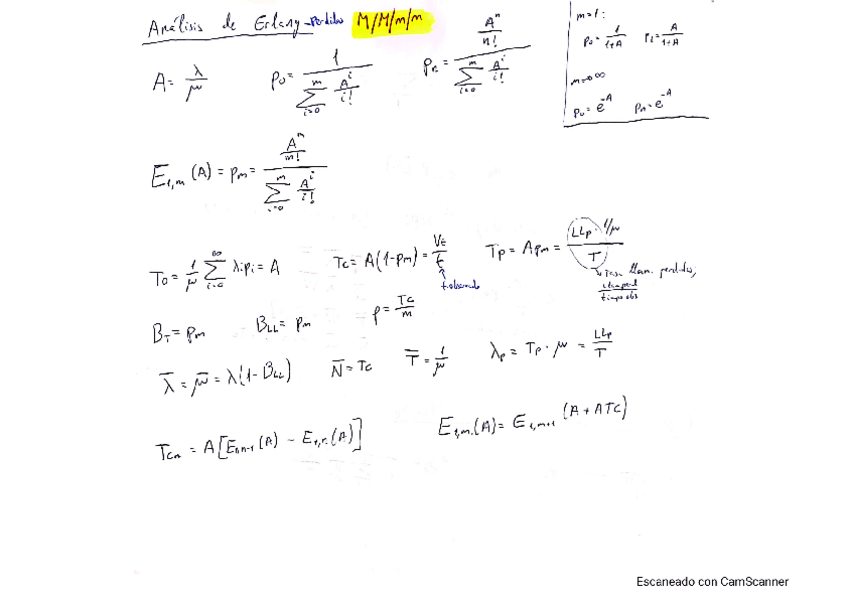 Análisis de Erlang - Pérdidas M/M/m/m
A = λ/μ
p0 = 1 / ∑_{i=0}^{m} A^i/i!
pn = (A^n/n!) / ∑_{i=0}^{m} A^i/i!
m=1:
p0 = 1/(1+A) p1 = A/(1+A)
m=∞
p0 = e^-A pn = e^-A
E1,m (A) = pm = (A^m/m!) / ∑_{i=0}^{m} A^i/i!
To = 1/μ ∑_{i=0}^{∞} λi pi = A
Tc = A(1-pm) = Vt/t
t. observado
Tp = A pm = (LLp · 1/μ) / T
Tasa llam. perdidas,
BT = pm
BLL = pm
ρ = Tc/m
λ̄ = μ̄ = λ(1-BLL)
N̄ = Tc
T̄ = 1/μ
λp = Tp · μ = LLp/T
Tcn = A[E1,n-1 (A) - E1,n (A)]
E1,m (A) = E1,m+1 (A + ATc)
Escaneado con CamScanner